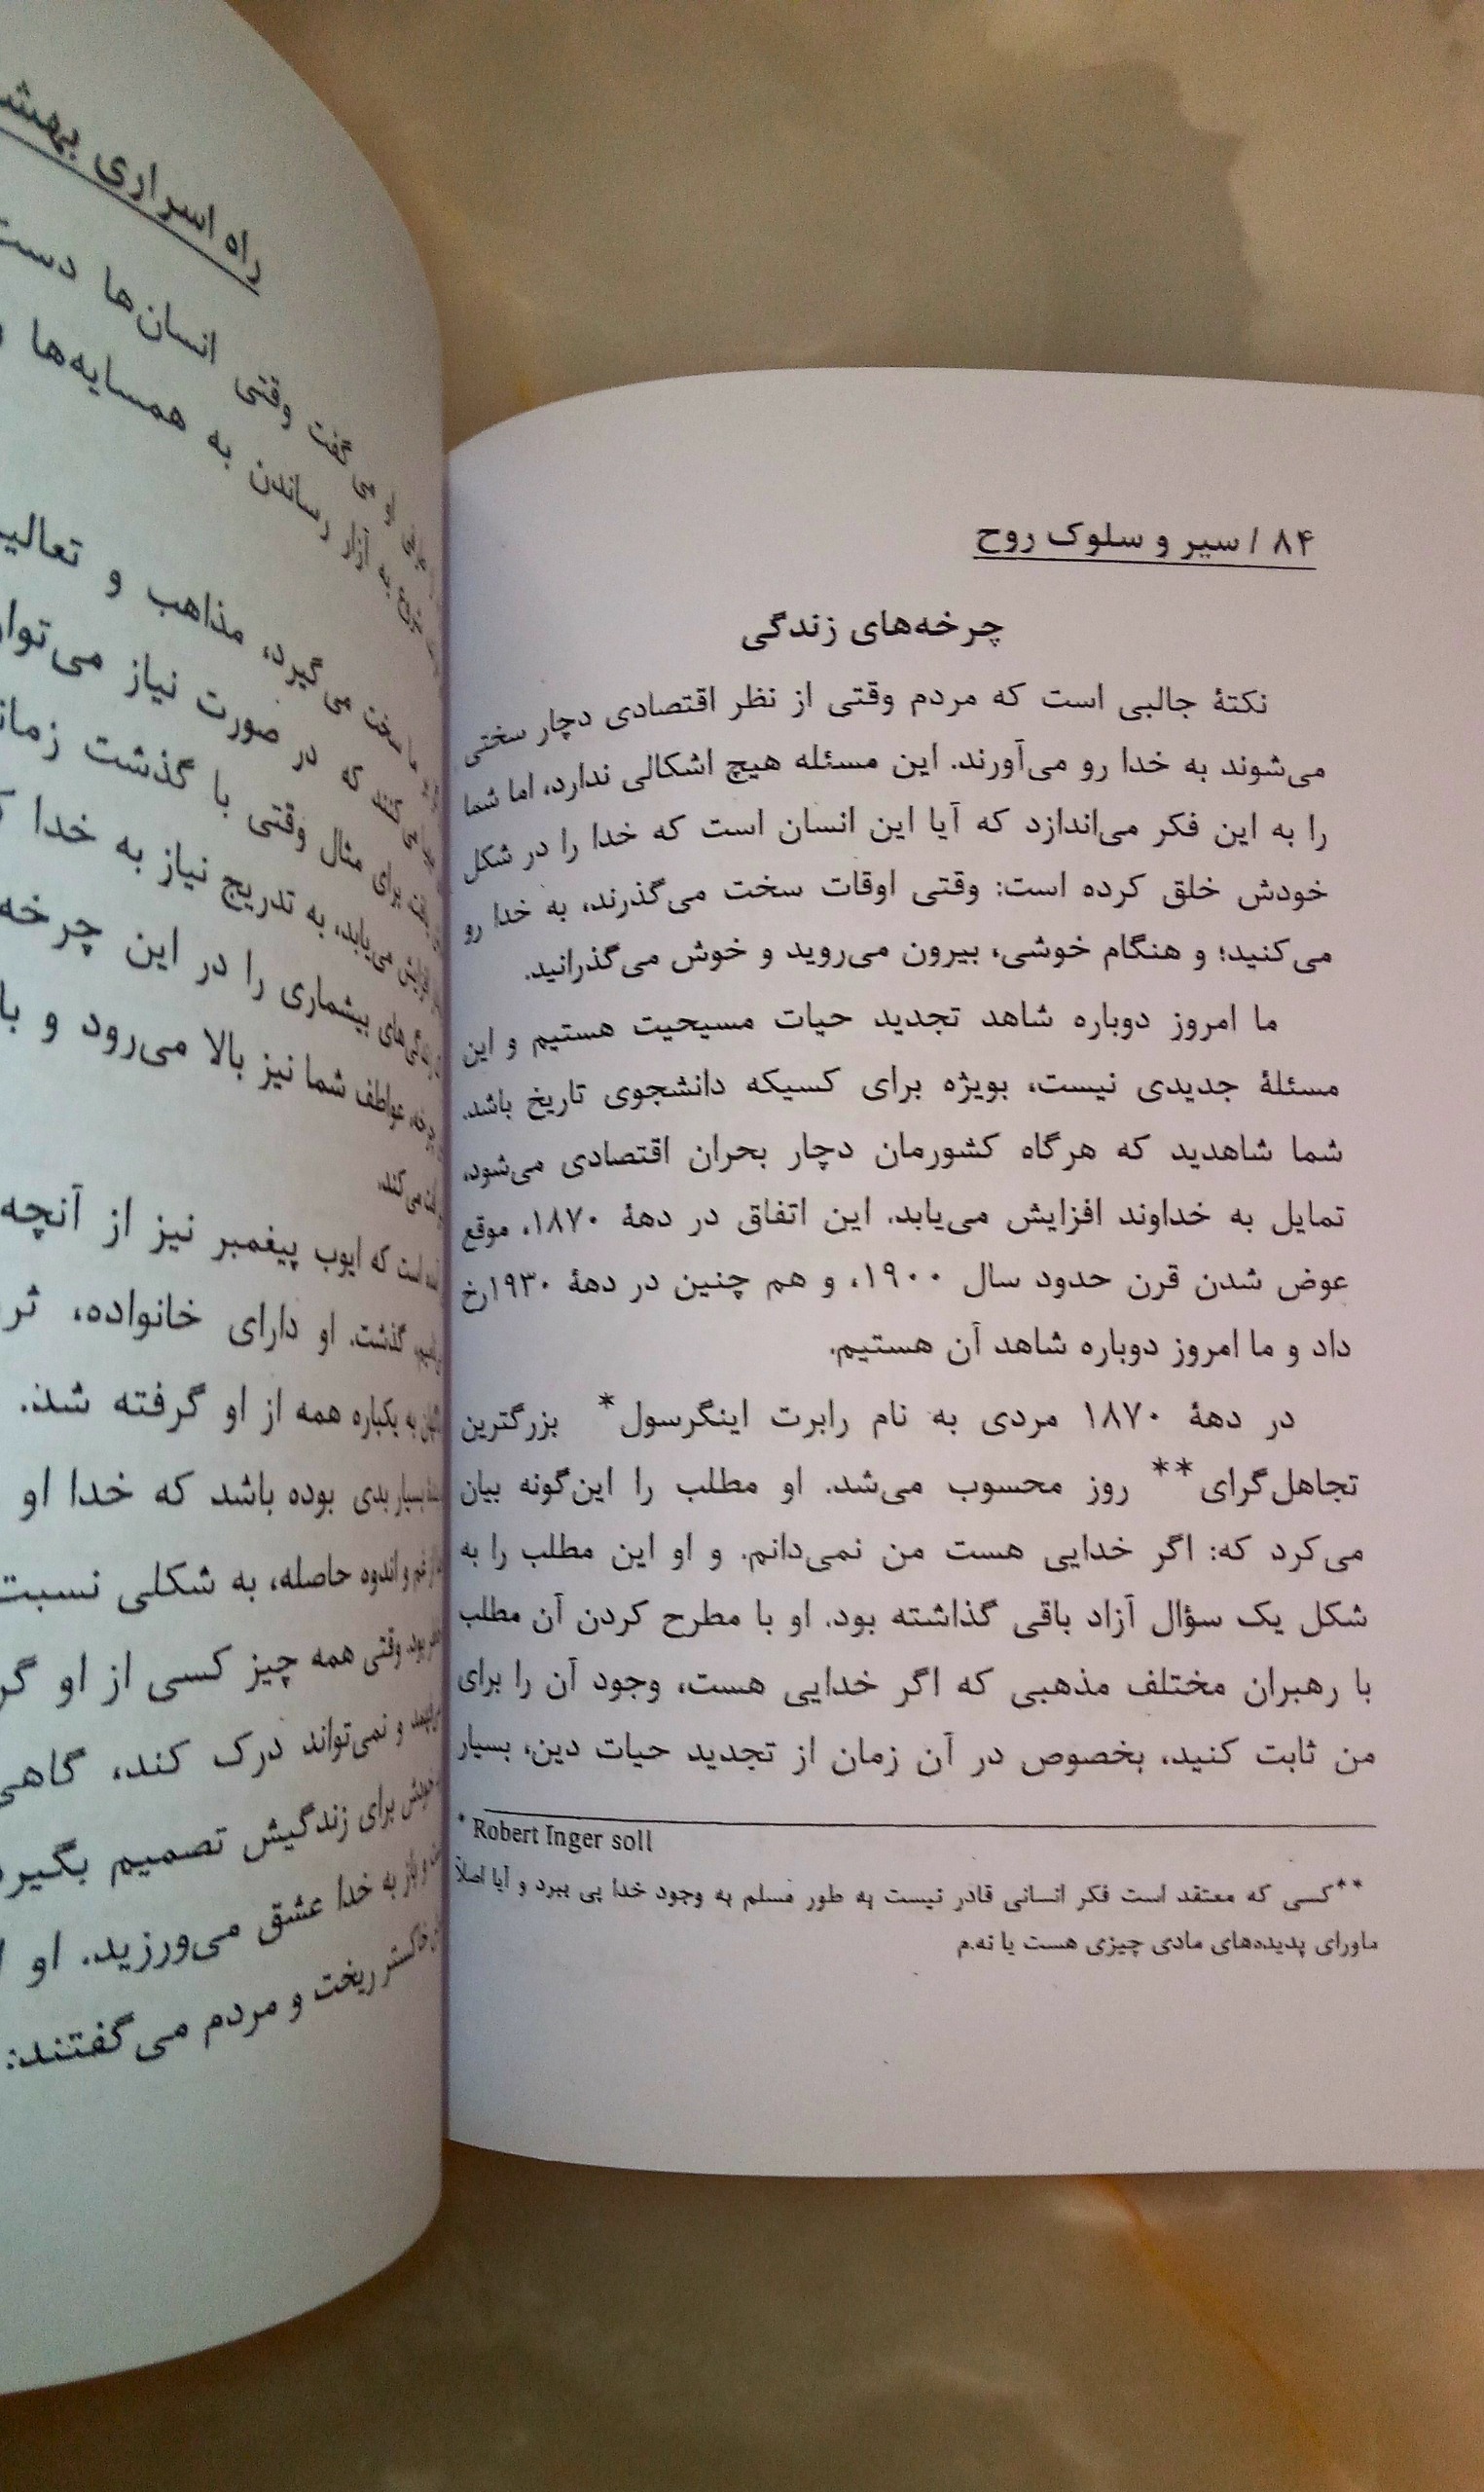 ۸۴ / سیر و سلوک روح
چرخه‌های زندگی
نکتهٔ جالبی است که مردم وقتی از نظر اقتصادی دچار سختی
می‌شوند به خدا رو می‌آورند. این مسئله هیچ اشکالی ندارد، اما شما
را به این فکر می‌اندازد که آیا این انسان است که خدا را در شکل
خودش خلق کرده است: وقتی اوقات سخت می‌گذرند، به خدا رو
می‌کنید؛ و هنگام خوشی، بیرون می‌روید و خوش می‌گذرانید.
ما امروز دوباره شاهد تجدید حیات مسیحیت هستیم و این
مسئلهٔ جدیدی نیست، بویژه برای کسیکه دانشجوی تاریخ باشد.
شما شاهدید که هرگاه کشورمان دچار بحران اقتصادی می‌شود،
تمایل به خداوند افزایش می‌یابد. این اتفاق در دههٔ ۱۸۷۰، موقع
عوض شدن قرن حدود سال ۱۹۰۰، و هم چنین در دههٔ ۱۹۳۰رخ
داد و ما امروز دوباره شاهد آن هستیم.
در دههٔ ۱۸۷۰ مردی به نام رابرت اینگرسول* بزرگترین
تجاهل‌گرای** روز محسوب می‌شد. او مطلب را این‌گونه بیان
می‌کرد که: اگر خدایی هست من نمی‌دانم. و او این مطلب را به
شکل یک سؤال آزاد باقی گذاشته بود. او با مطرح کردن آن مطلب
با رهبران مختلف مذهبی که اگر خدایی هست، وجود آن را برای
من ثابت کنید، بخصوص در آن زمان از تجدید حیات دین، بسیار
* Robert Inger soll
**کسی که معتقد است فکر انسانی قادر نیست به طور مسلم به وجود خدا پی ببرد و آیا اصلاً
ماورای پدیده‌های مادی چیزی هست یا نه.م
راه اسراری
می گفت وقتی انسان‌ها
به آزار رساندن به همسایه‌ها
سخت می گیرد، مذاهب و
که در صورت نیاز
برای مثال وقتی با گذشت
می‌یابد، به تدریج نیاز به خدا
بیشماری را در این چرخه
عواطف شما نیز بالا می‌رود و
می‌کند.
است که ایوب پیغمبر نیز از آنچه
گذشت. او دارای خانواده،
به یکباره همه از او گرفته شد.
بسیار بدی بوده باشد که خدا او
غم و اندوه حاصله، به شکلی نسبت
وقتی همه چیز کسی از او
و نمی‌تواند درک کند،
برای زندگیش تصمیم
به خدا عشق می‌ورزید. او
خاکستر ریخت و مردم می‌گفتند: